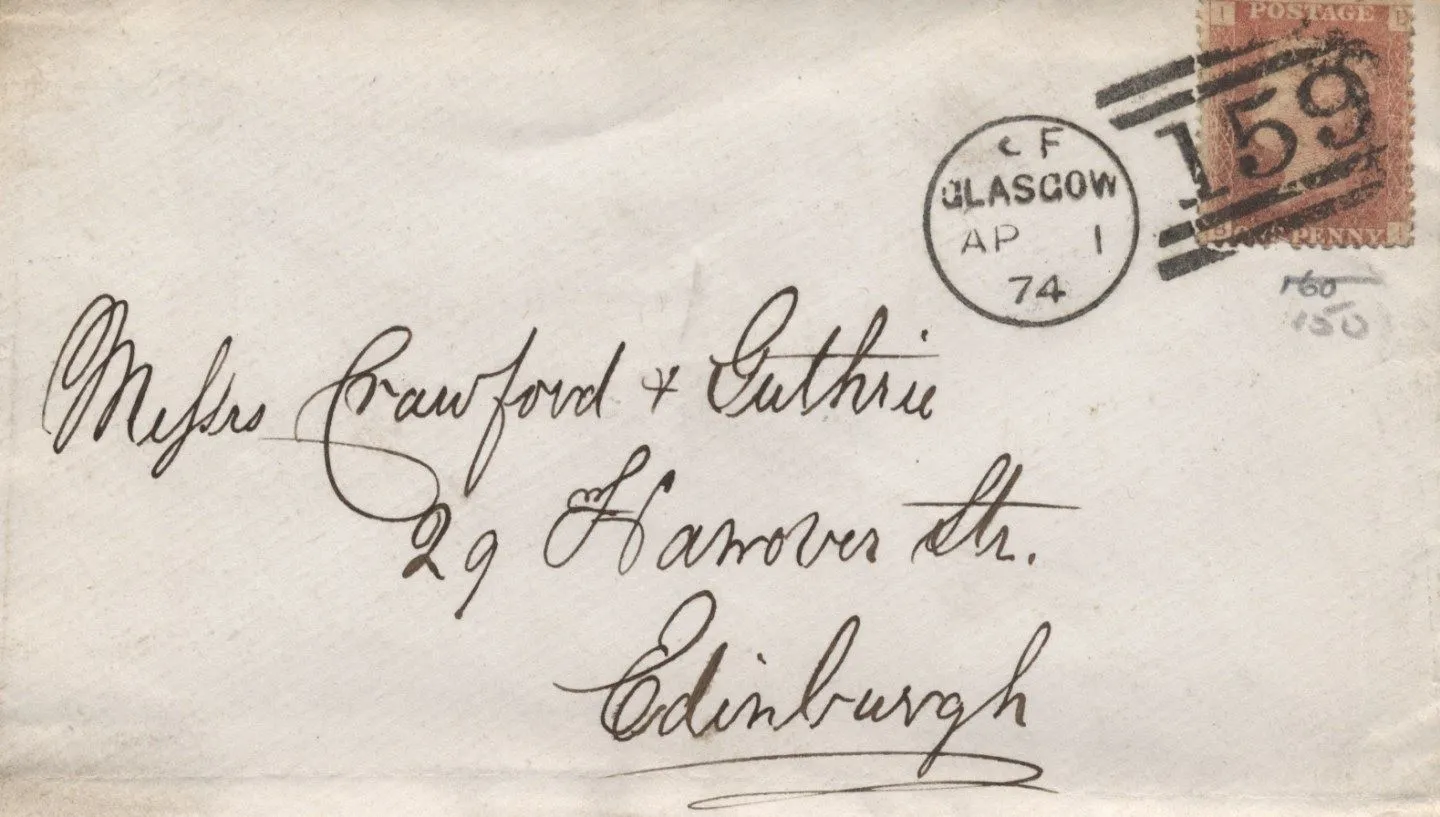 POSTAGE
159
ONE PENNY
F
GLASGOW
AP 1
74
160
150
Messrs Crawford + Guthrie
29 Hanover Str.
Edinburgh